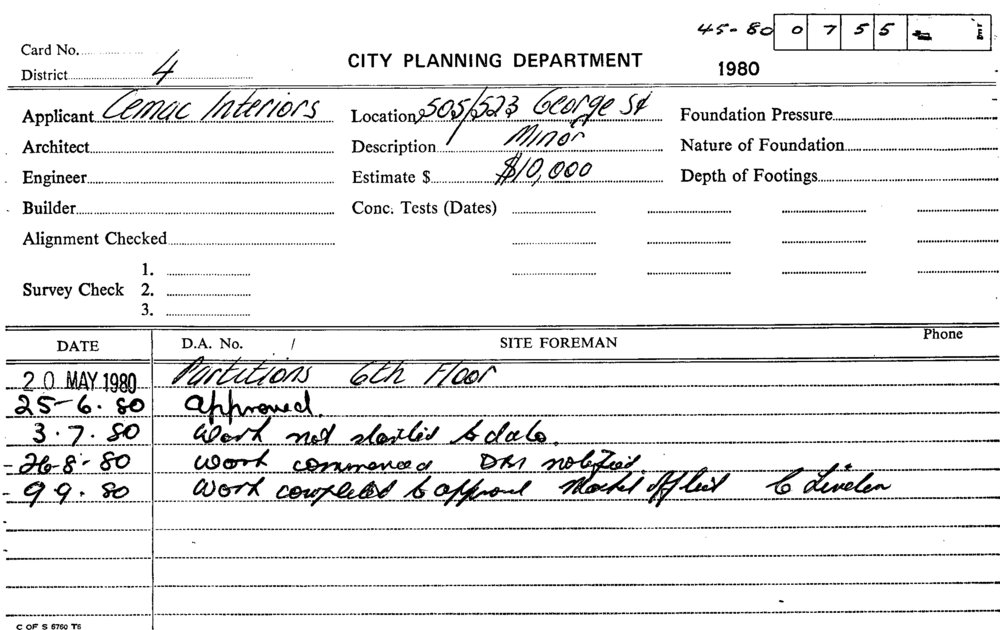 45-80 0755
Card No.
District 4
CITY PLANNING DEPARTMENT
1980
Applicant Cemac Interiors
Location 505/523 George St
Foundation Pressure
Architect
Description Minor
Nature of Foundation
Engineer
Estimate $ $10,000
Depth of Footings
Builder
Conc. Tests (Dates)
Alignment Checked
Survey Check
1.
2.
3.
DATE
D.A. No. /
SITE FOREMAN
Phone
20 MAY 1980 Partitions 6th Floor
25-6.80 approved.
3.7.80 Work not started to date.
26-8-80 Work commenced notified
9 9. 80 Work completed to approval
C OF S 6760 T6